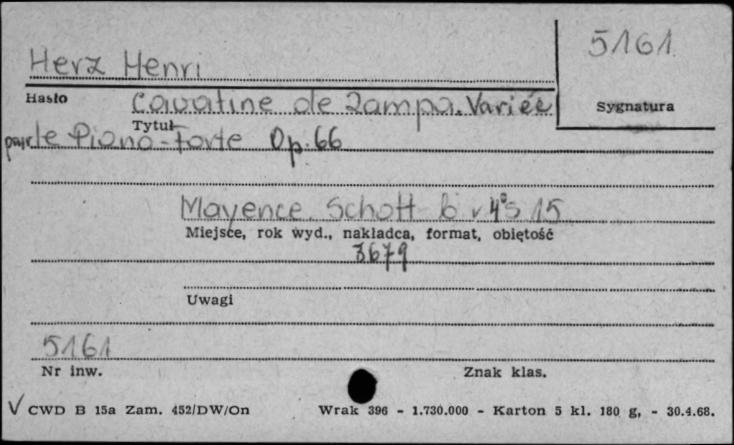 5161
Herz Henri
Hasło
Cavatine de Zampa. Variée
Sygnatura
Tytuł
pour le Piano-Forte Op. 66
Mayence. Schott b v 4° s 15
Miejsce, rok wyd., nakładca, format, objętość
3679
Uwagi
5161
Nr inw.
Znak klas.
V CWD B 15a Zam. 452/DW/On Wrak 396 - 1.730.000 - Karton 5 kl. 180 g, - 30.4.68.